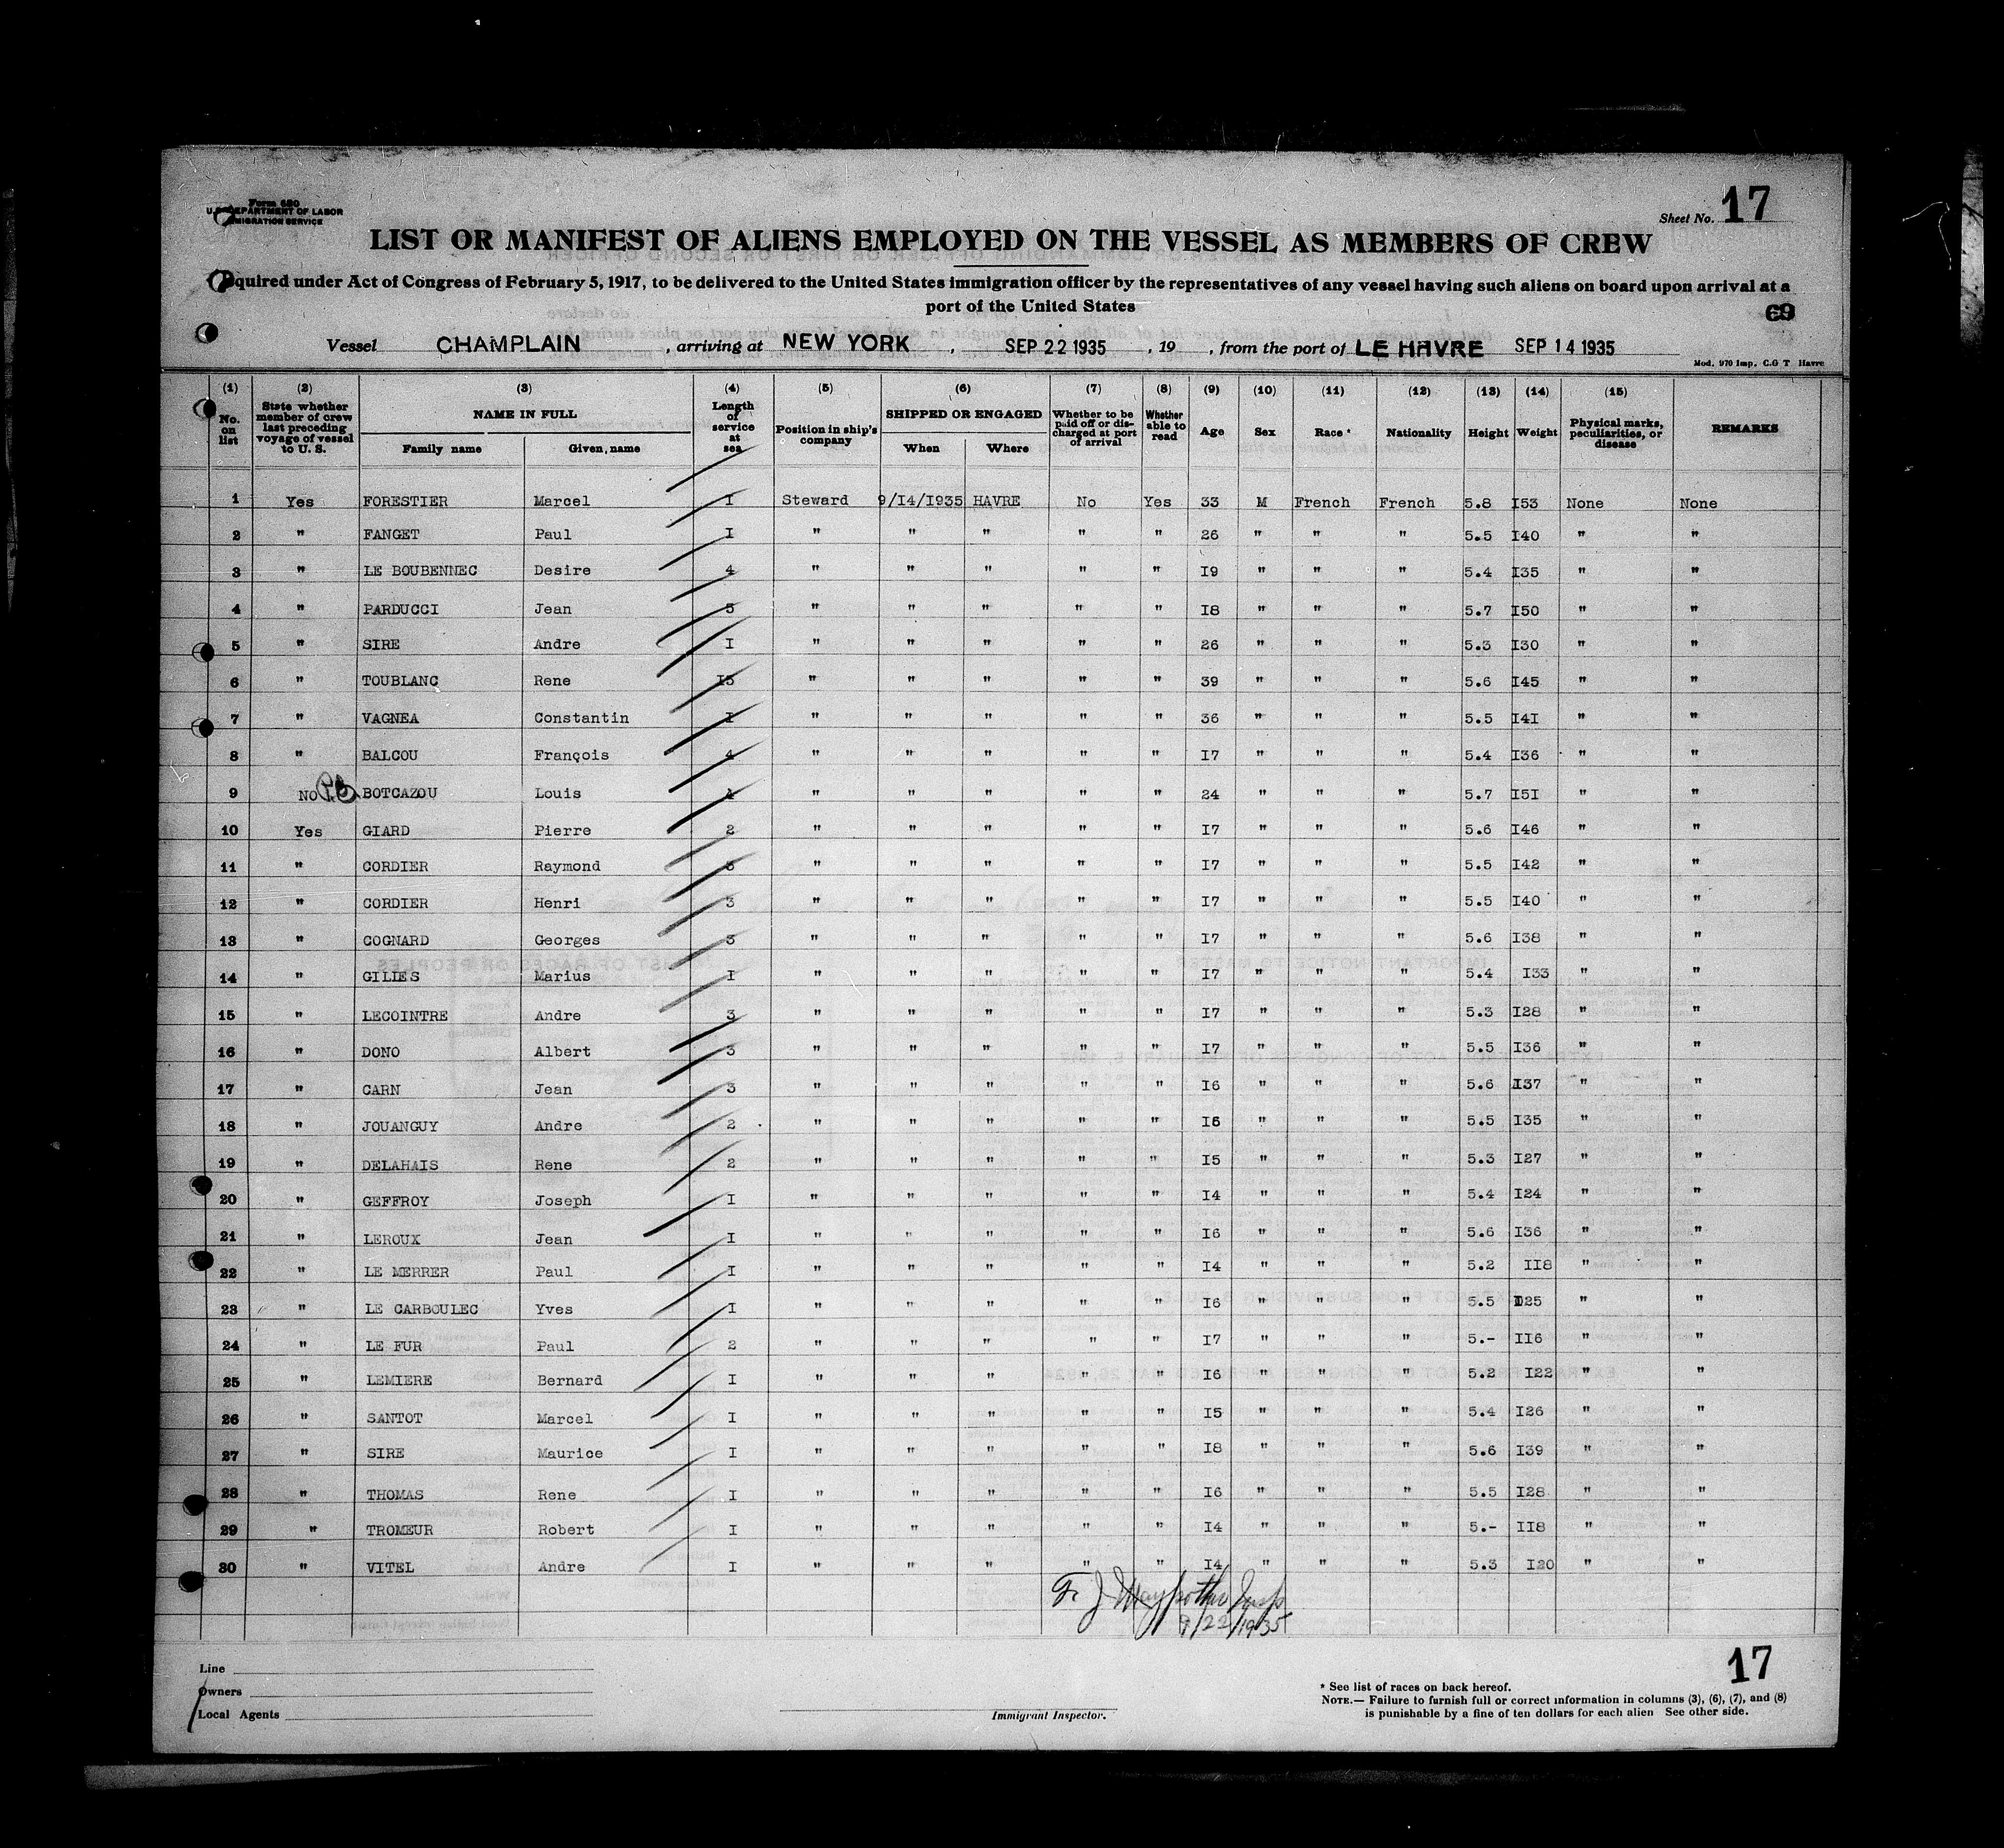 Form 680
U.S. DEPARTMENT OF LABOR
IMMIGRATION SERVICE
Sheet No. 17
LIST OR MANIFEST OF ALIENS EMPLOYED ON THE VESSEL AS MEMBERS OF CREW
Required under Act of Congress of February 5, 1917, to be delivered to the United States immigration officer by the representatives of any vessel having such aliens on board upon arrival at a
port of the United States
69
Vessel CHAMPLAIN , arriving at NEW YORK , SEP 22 1935 , 19 , from the port of LE HAVRE SEP 14 1935
Mod. 970 Imp. C.G T Havre
(1) (2) (3) (4) (5) (6) (7) (8) (9) (10) (11) (12) (13) (14) (15)
No. on list State whether member of crew last preceding voyage of vessel to U. S. NAME IN FULL Family name Given name Length of service at sea Position in ship's company SHIPPED OR ENGAGED When Where Whether to be paid off or discharged at port of arrival Whether able to read Age Sex Race * Nationality Height Weight Physical marks, peculiarities, or disease REMARKS
1 Yes FORESTIER Marcel I Steward 9/I4/I935 HAVRE No Yes 33 M French French 5.8 I53 None None
2 " FANGET Paul I " " " " " 26 " " " 5.5 I40 " "
3 " LE BOUBENNEC Desire 4 " " " " " I9 " " " 5.4 I35 " "
4 " PARDUCCI Jean 5 " " " " " I8 " " " 5.7 I50 " "
5 " SIRE Andre I " " " " " 26 " " " 5.3 I30 " "
6 " TOUBLANC Rene I5 " " " " " 39 " " " 5.6 I45 " "
7 " VAGNEA Constantin I " " " " " 36 " " " 5.5 I4I " "
8 " BALCOU François 4 " " " " " I7 " " " 5.4 I36 " "
9 NO BOTCAZOU Louis 4 " " " " " 24 " " " 5.7 I5I " "
10 Yes GIARD Pierre 2 " " " " " I7 " " " 5.6 I46 " "
11 " CORDIER Raymond 3 " " " " " I7 " " " 5.5 I42 " "
12 " CORDIER Henri 3 " " " " " I7 " " " 5.5 I40 " "
13 " COGNARD Georges 3 " " " " " I7 " " " 5.6 I38 " "
14 " GILIES Marius I " " " " " I7 " " " 5.4 I33 " "
15 " LECOINTRE Andre 3 " " " " " I7 " " " 5.3 I28 " "
16 " DONO Albert 3 " " " " " I7 " " " 5.5 I36 " "
17 " CARN Jean 3 " " " " " I6 " " " 5.6 I37 " "
18 " JOUANGUY Andre 2 " " " " " I6 " " " 5.5 I35 " "
19 " DELAHAIS Rene 2 " " " " " I5 " " " 5.3 I27 " "
20 " GEFFROY Joseph I " " " " " I4 " " " 5.4 I24 " "
21 " LEROUX Jean I " " " " " I6 " " " 5.6 I36 " "
22 " LE MERRER Paul I " " " " " I4 " " " 5.2 II8 " "
23 " LE CARBOULEC Yves I " " " " " I6 " " " 5.5 I25 " "
24 " LE FUR Paul 2 " " " " " I7 " " " 5.- II6 " "
25 " LEMIERE Bernard I " " " " " I6 " " " 5.2 I22 " "
26 " SANTOT Marcel I " " " " " I5 " " " 5.4 I26 " "
27 " SIRE Maurice I " " " " " I8 " " " 5.6 I39 " "
28 " THOMAS Rene I " " " " " I6 " " " 5.5 I28 " "
29 " TROMEUR Robert I " " " " " I4 " " " 5.- II8 " "
30 " VITEL Andre I " " " " " I4 " " " 5.3 I20 " "
9/22/1935
17
Line
Owners
Local Agents
Immigrant Inspector.
* See list of races on back hereof.
NOTE.— Failure to furnish full or correct information in columns (3), (6), (7), and (8)
is punishable by a fine of ten dollars for each alien See other side.